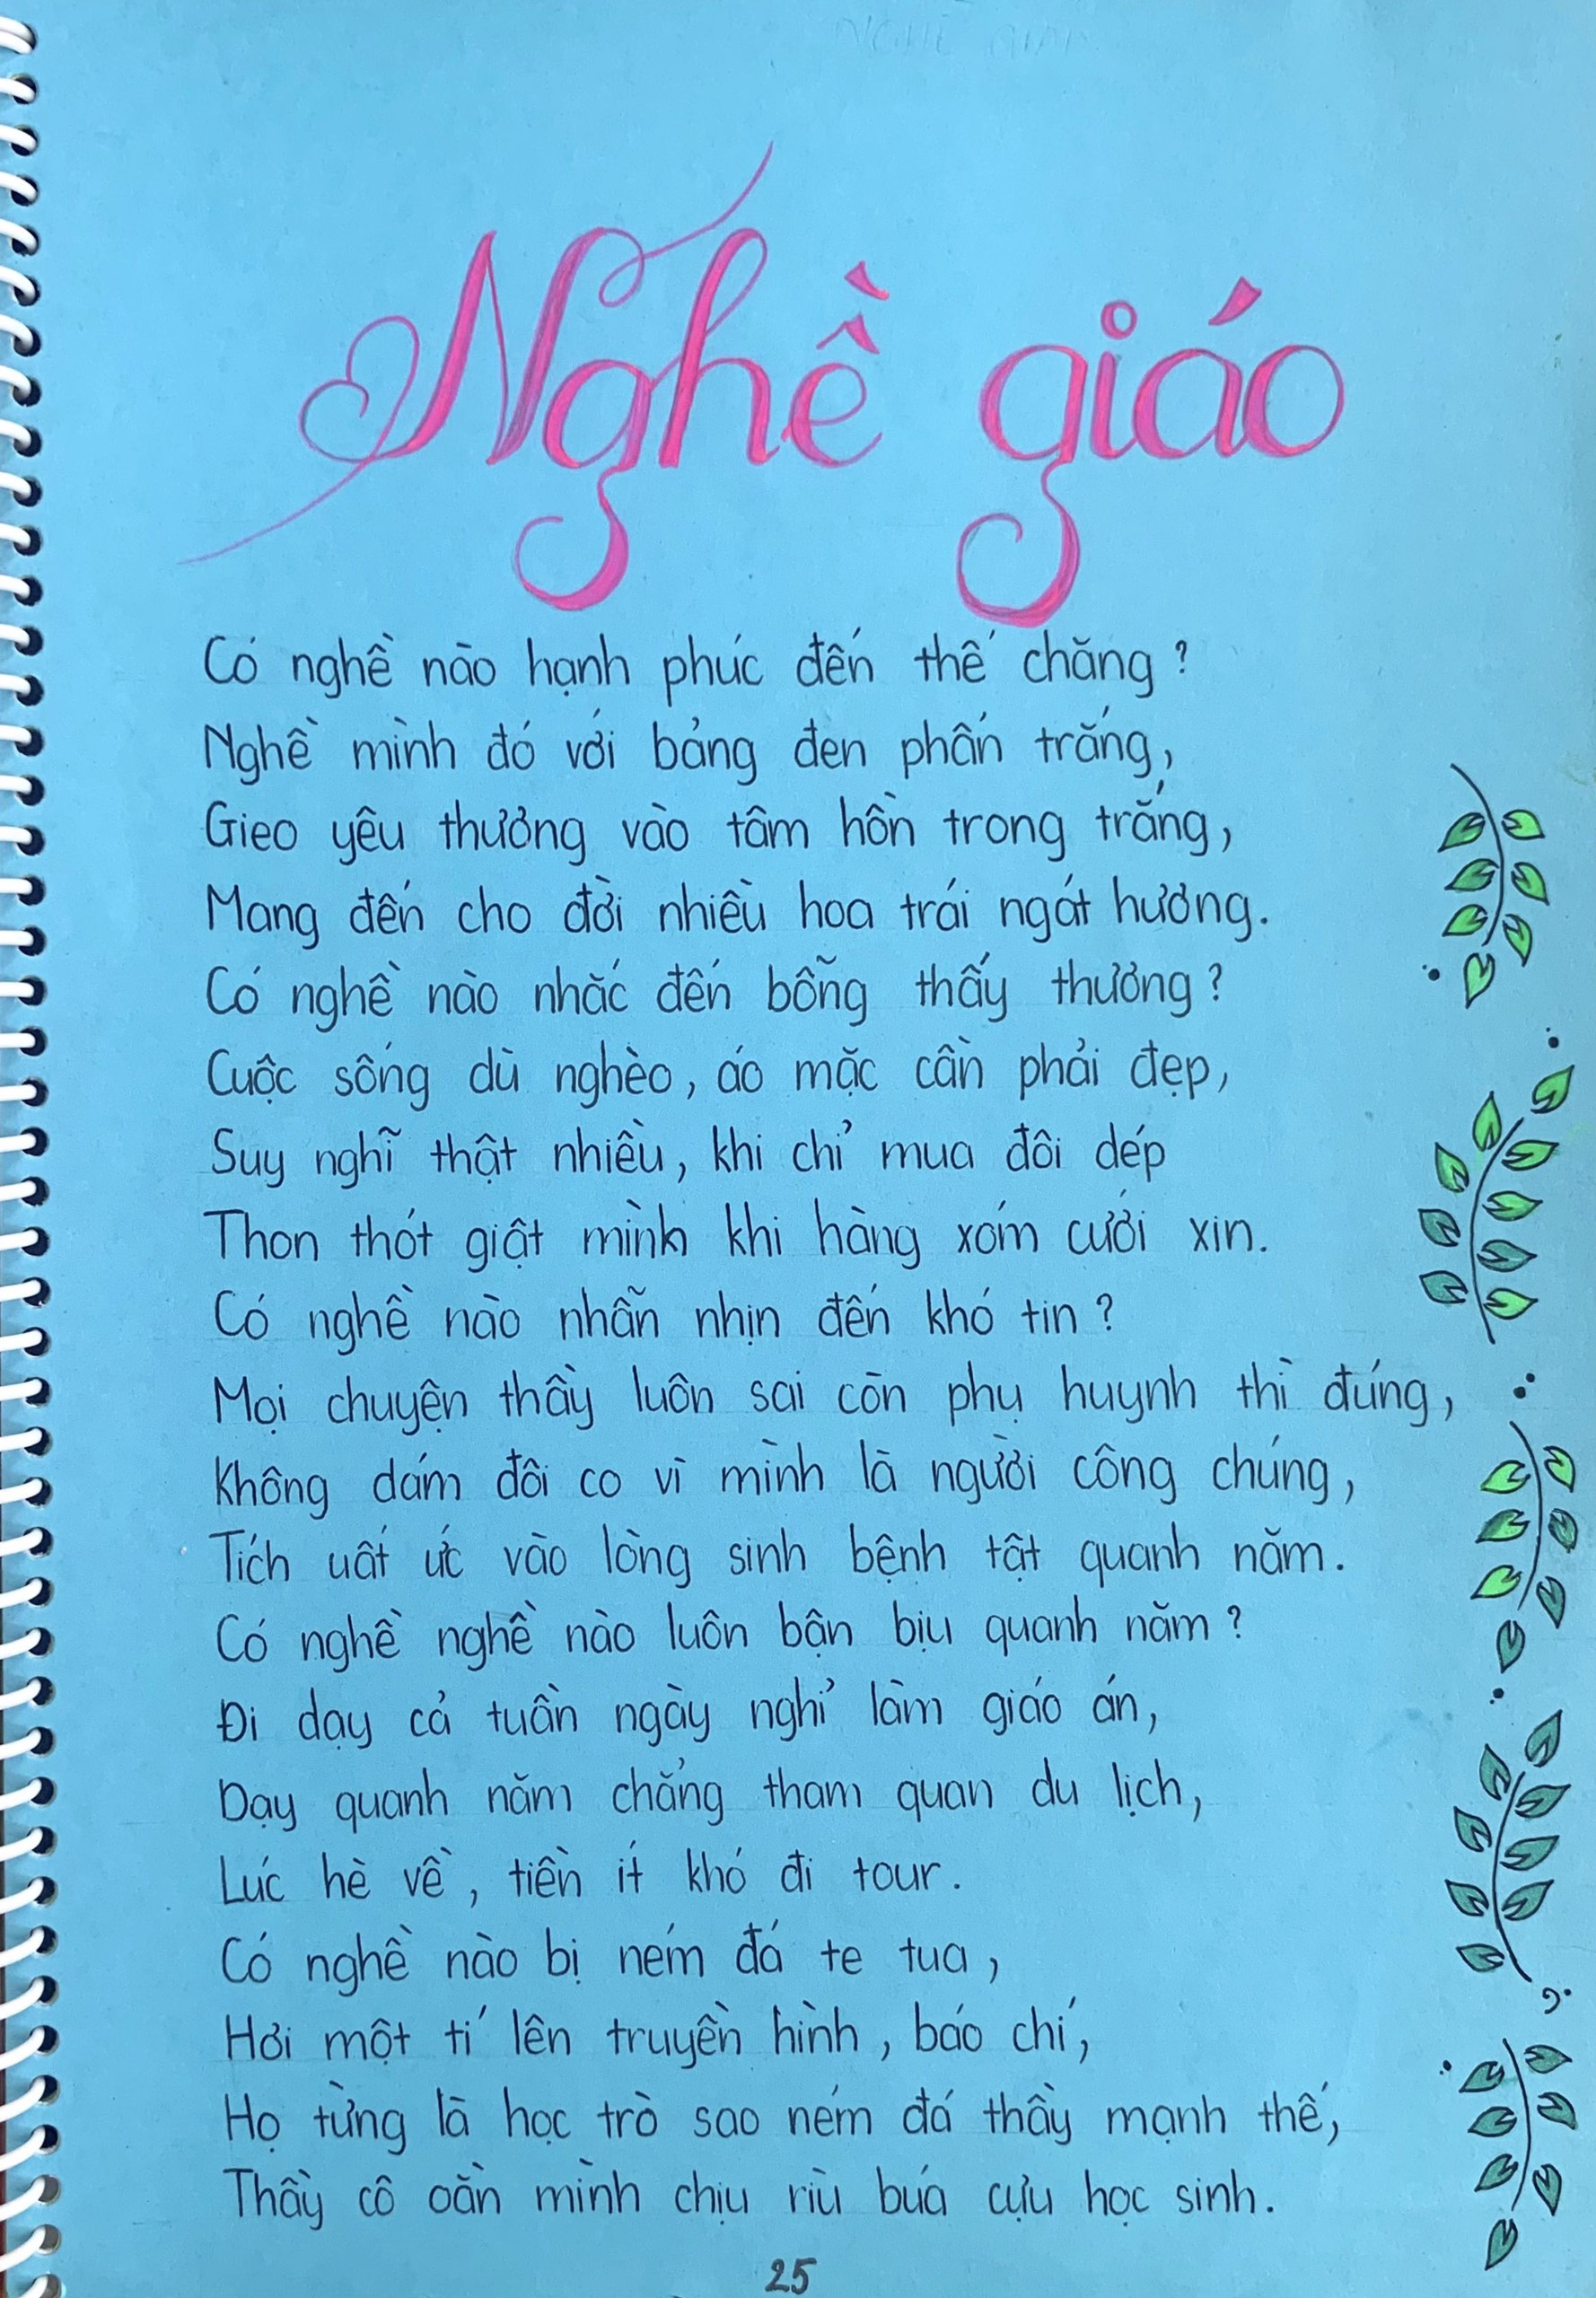 Nghề giáo
Có nghề nào hạnh phúc đến thế chăng?
Nghề mình đó với bảng đen phấn trắng,
Gieo yêu thương vào tâm hồn trong trắng,
Mang đến cho đời nhiều hoa trái ngát hương.
Có nghề nào nhắc đến bỗng thấy thương?
Cuộc sống dù nghèo, áo mặc cần phải đẹp,
Suy nghĩ thật nhiều, khi chỉ mua đôi dép
Thon thót giật mình khi hàng xóm cưới xin.
Có nghề nào nhẫn nhịn đến khó tin?
Mọi chuyện thầy luôn sai còn phụ huynh thì đúng,
Không dám đôi co vì mình là người công chúng,
Tích uất ức vào lòng sinh bệnh tật quanh năm.
Có nghề nghề nào luôn bận bịu quanh năm?
Đi dạy cả tuần ngày nghỉ làm giáo án,
Dạy quanh năm chẳng tham quan du lịch,
Lúc hè về, tiền ít khó đi tour.
Có nghề nào bị ném đá te tua,
Hơi một tí lên truyền hình, báo chí,
Họ từng là học trò sao ném đá thầy mạnh thế,
Thầy cô oằn mình chịu rìu búa cựu học sinh.
25